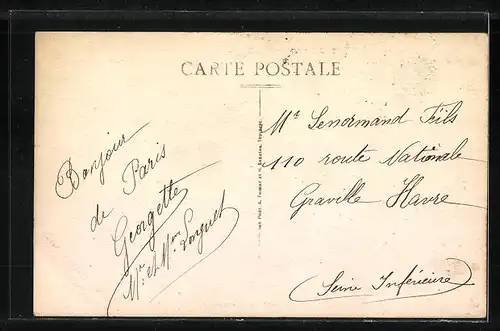 CARTE POSTALE
Bonjour
de Paris
Georgette
Mr et Mme Longuet
Mr Lenormand Fils
110 route Nationale
Graville Havre
Seine Inférieure